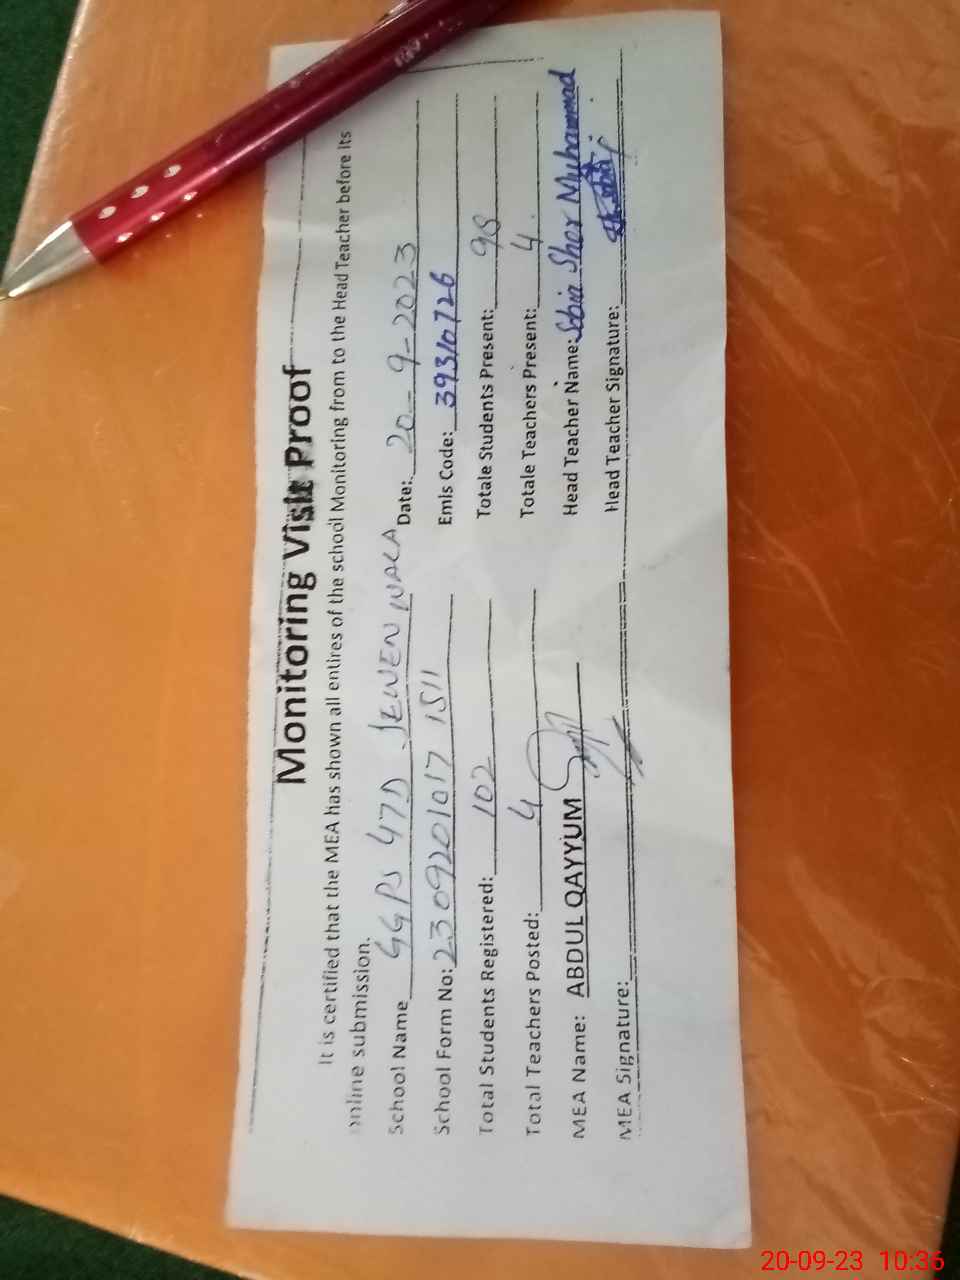 Monitoring Visit Proof
It is certified that the MEA has shown all entires of the school Monitoring from to the Head Teacher before its
online submission.
School Name GGPS 47D JEWEN WALA Date: 20-9-2023
School Form No: 2309201017 1511 Emis Code: 39310726
Total Students Registered: 102 Totale Students Present: 98
Total Teachers Posted: 4 Totale Teachers Present: 4.
MEA Name: ABDUL QAYYUM Head Teacher Name: Sobia Sher Muhammad
MEA Signature: Head Teacher Signature:
20-09-23 10:36